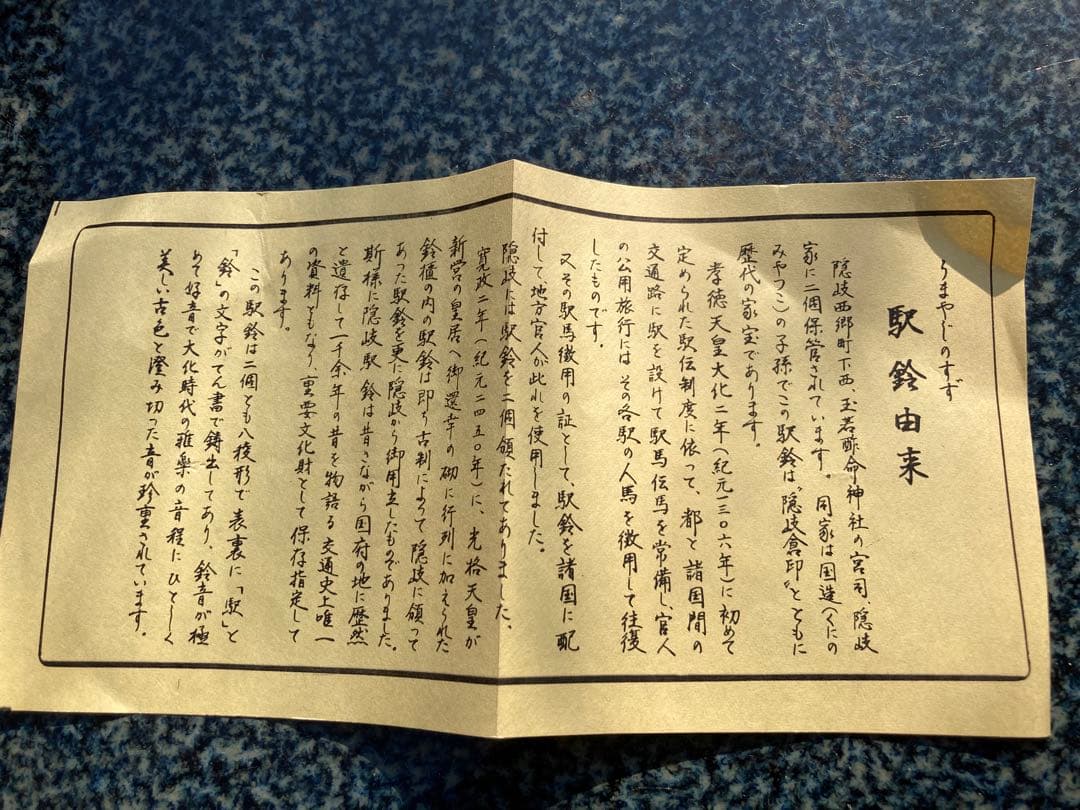 うまやじのすず
駅鈴由来
隠岐西郷町下西、玉若酢命神社の宮司、隠岐
家に二個保管されています。同家は国造(くにの
みやつこ)の子孫でこの駅鈴は"隠岐倉印"とともに
歴代の家宝であります。
孝徳天皇大化二年(紀元一三〇六年)に初めて
定められた駅伝制度に依って、都と諸国間の
交通路に駅を設けて駅馬伝馬を常備し、官人
の公用旅行にはその各駅の人馬を徴用して往復
したものです。
又その駅馬徴用の証として、駅鈴を諸国に配
付して地方官人が此れを使用しました。
隠岐には駅鈴を二個領たれてありました。
寛政二年(紀元二四五〇年)に、光格天皇が
新営の皇居へ御還幸の砌に行列に加えられた
鈴櫃の内の駅鈴は即ち古制によって隠岐に領って
あった駅鈴を更に隠岐から御用立したものでありました。
斯様に隠岐駅鈴は昔さながら国府の地に歴然
と遺存して一千余年の昔を物語る交通史上唯一
の資料ともなり、重要文化財として保存指定して
あります。
この駅鈴は二個とも八稜形で表裏に「駅」と
「鈴」の文字がてん書で鋳出してあり、鈴音が極
めて好音で大化時代の雅楽の音程にひとしく
美しい古色と澄み切った音が珍重されています。